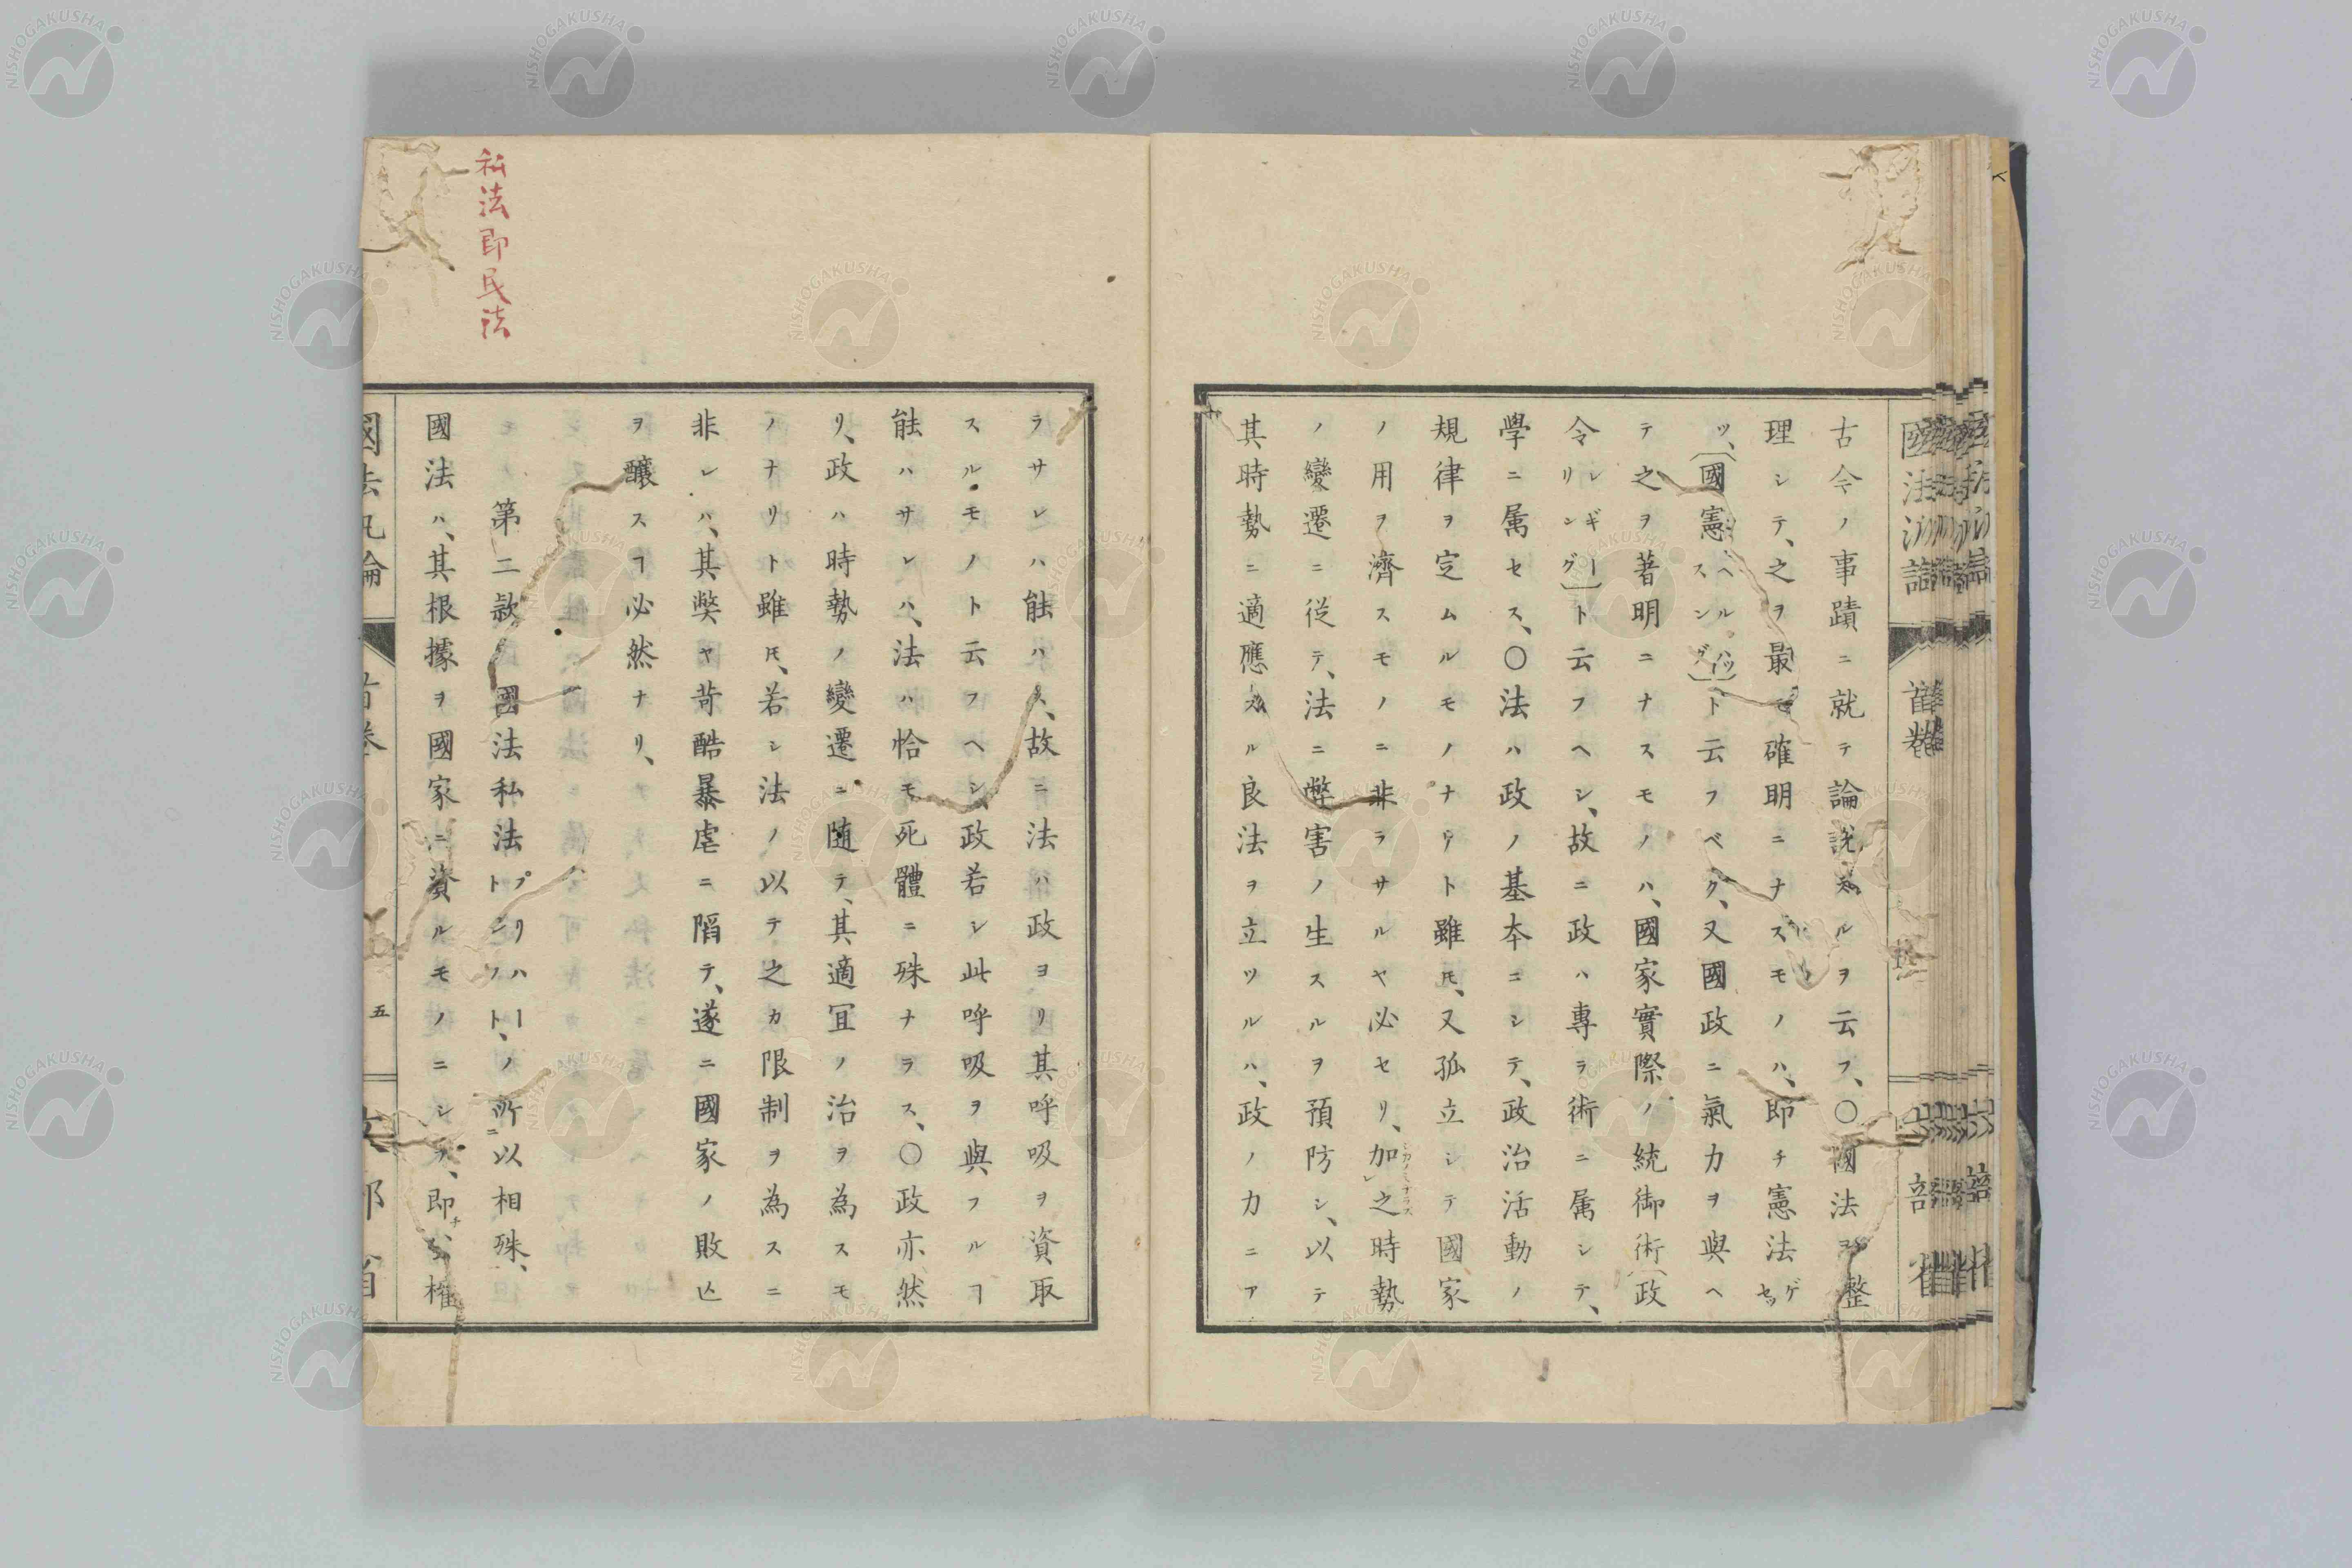 古今ノ事蹟ニ就テ論説スルヲ云フ、〇國法ヲ整
理シテ、之ヲ最モ確明ニナスモノハ、即チ憲法ゲセッ
ツ、(國憲ヘルハッスングー)ト云フベク、又國政ニ氣力ヲ與ヘ
テ之ヲ著明ニナスモノハ、國家實際ノ統御術(政
令レギーリング)ト云フヘシ、故ニ政ハ專ラ術ニ属シテ、
學ニ属セス、〇法ハ政ノ基本ニシテ、政治活動ノ
規律ヲ定ムルモノナリト雖㆑、又孤立シテ國家
ノ用ヲ濟スモノニ非ラサルヤ必セリ、加之時勢
ノ變遷ニ従テ、法ニ弊害ノ生スルヲ預防シ、以テ
其時勢ニ適應スル良法ヲ立ツルハ、政ノ力ニア
ラサレハ能ハス、故ニ法ハ政ヨリ其呼吸ヲ資取
スルモノト云フヘシ、政若シ此呼吸ヲ與フルヿ
能ハサレハ、法ハ恰モ死體ニ殊ナラス、〇政亦然
リ、政ハ時勢ノ變遷ニ随テ、其適冝ノ治ヲ為スモ
ノナリト雖𪜈、若シ法ノ以テ之カ限制ヲ為スニ
非レハ、其弊ヤ苛酷暴虐ニ陷テ、遂ニ國家ノ敗亡
ヲ釀スヿ必然ナリ、
第二款 國法私法プリハートト、ノ所以相殊、
國法ハ、其根據ヲ國家ニ資ルモノニシテ、即チ權
私法即民法
國法汎論
首巻
五
文部省
國法汎論
首巻
文部省
NISHOGAKUSHA